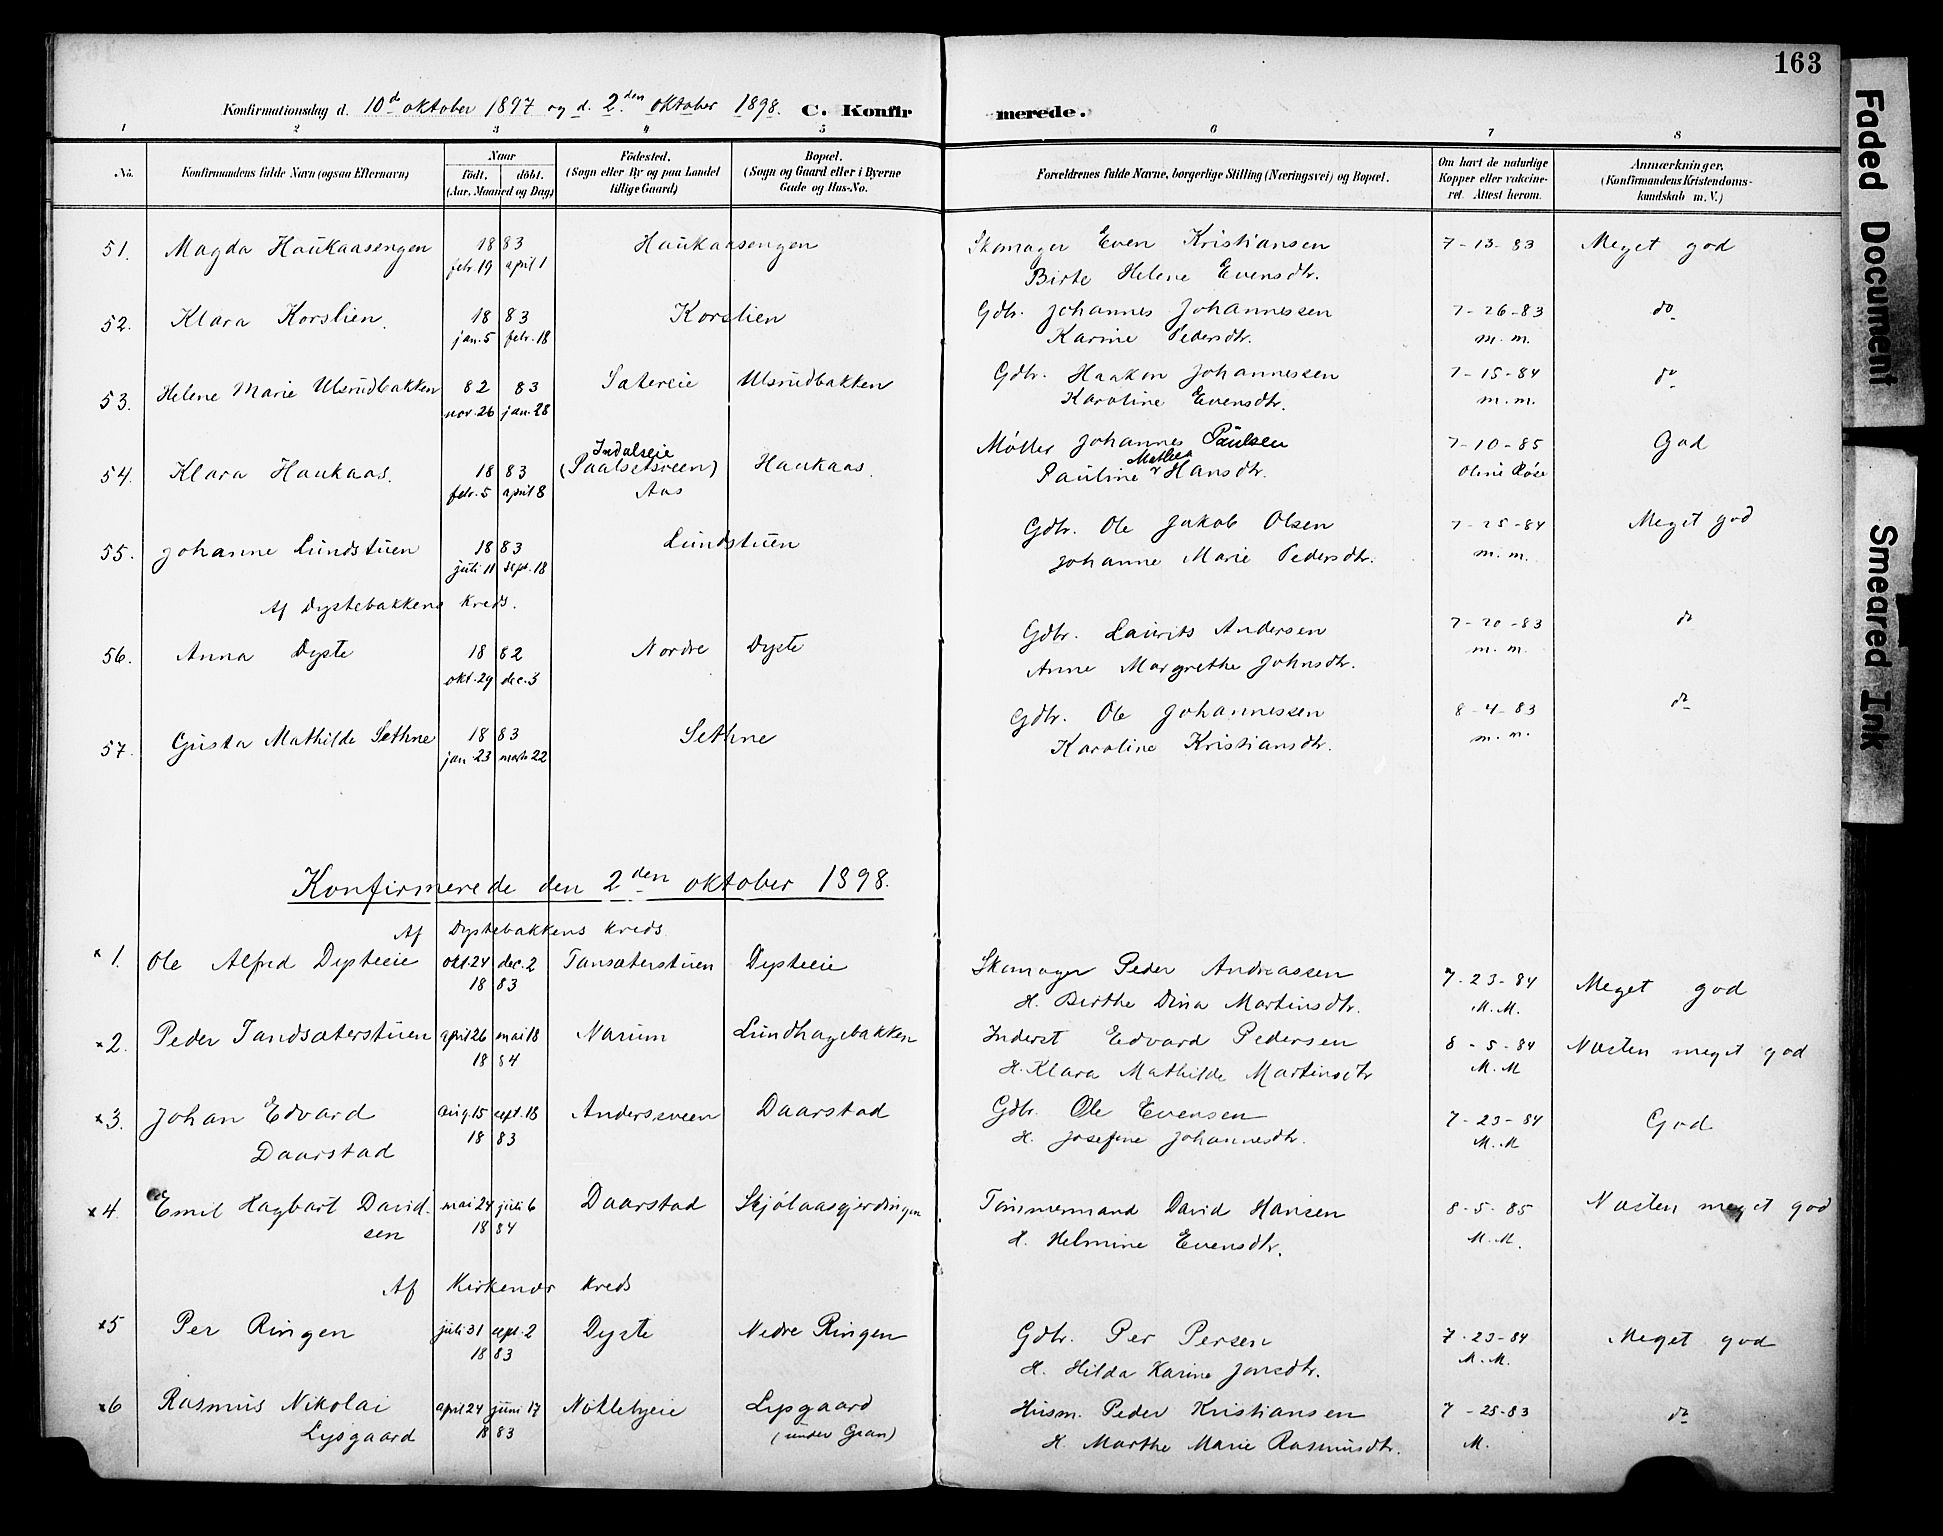 163
Konfirmationsdag d. 10d oktober 1897 og d. 2den oktober 1898. C. Konfirmerede.
1 2 3 4 5 6 7 8
No. Konfirmandens fulde Navn (ogsaa Efternavn) Naar født. døbt. (Aar, Maaned og Dag) Födested. (Sogn eller By og paa Landet tillige Gaard) Bopæl. (Sogn og Gaard eller i Byerne Gade og Hus-No. Forældrenes fulde Navne, borgerlige Stilling (Næringsvei) og Bopæl. Om havt de naturlige Kopper eller vaccineret. Attest herom. Anmærkninger. (Konfirmandens Kristendomskundskab m. V.)
51. Magda Haukaasengen 18 83 Haukaasengen Skomager Even Kristiansen 7-13-83 Meget god
febr. 19 april 1 Birte Helene Evensdtr.
52. Klara Korslien. 18 83 Korslien Gdbr. Johannes Johannessen 7-26-83 do
jan. 5 febr. 18 Karine Pedersdtr. m. m.
53. Helene Marie Ulsrudbakken 82 83 Satereie Ulsrudbakken Gdbr. Haakon Johannessen 7-15-84 do
nov. 26 jan. 28 Karoline Evensdtr. m. m.
54. Klara Haukaas. 18 83 Indalseie (Paalsetsveen) Haukaas. Møller Johannes Paulsen 7-10-85 God
febr. 5 april 8 Aas Pauline Mathea Hansdtr. Oline Røse
55. Johanne Lundstuen 18 83 Lundstuen Gdbr. Ole Jakob Olsen 7-25-84 Meget god
juli 11 sept. 18 Johanne Marie Pedersdtr. m. m.
Af Dystebakkens Kreds.
56. Anna Dyste 18 82 Nordre Dyste Gdbr. Laurits Andersen 7-20-83 do
okt. 29 dec. 3 Anne Margrethe Johnsdtr. m. m.
57. Gusta Mathilde Sethne 18 83 Sethne Gdbr. Ole Johannessen 8-4-83 do
jan. 23 marts 22 Karoline Kristiansdtr. m. m.
Konfirmerede den 2den oktober 1898.
Af Dystebakkens Kreds
x 1. Ole Alfred Dysteeie okt. 24 dec. 2 Tansæterstuen Dysteeie Skomager Peder Andreassen 7-23-84 Meget god
18 83 H. Berthe Dina Martinsdtr. M. M.
x 2. Peder Tandsæterstuen april 26 mai 18 Narum Lundhagebakken Inderst Edvard Pedersen 8-5-84 Næsten meget god
18 84 H. Klara Mathilde Martinsdtr M. M
x 3. Johan Edvard aug. 15 sept. 18 Andersveen Daarstad Gdbr. Ole Evensen 7-23-84 God
Daarstad 18 83 H. Josefine Johannesdtr. M. M
x 4. Emil Hagbart Davidsen mai 24 juli 6 Daarstad Skjølaasgjerdingen Tømmermand David Hansen 8-5-85 Næsten meget god
18 84 H. Helmine Evensdtr. M. M.
Af Kirkenær Kreds
x 5 Per Ringen juli 31 sept. 2 Dyste Nedre Ringen Gdbr. Per Persen 7-23-84 Meget god
18 83 H. Hilda Karine Jonsdtr. M. M.
x 6 Rasmus Nikolai april 24 juni 17 Nøtlebyeie Lysgaard Husm. Peder Kristiansen 7-25-83 do
Lysgaard 18 83 (under Gran) H. Marthe Marie Rasmusdtr. M.
Faded Document
Smeared Ink